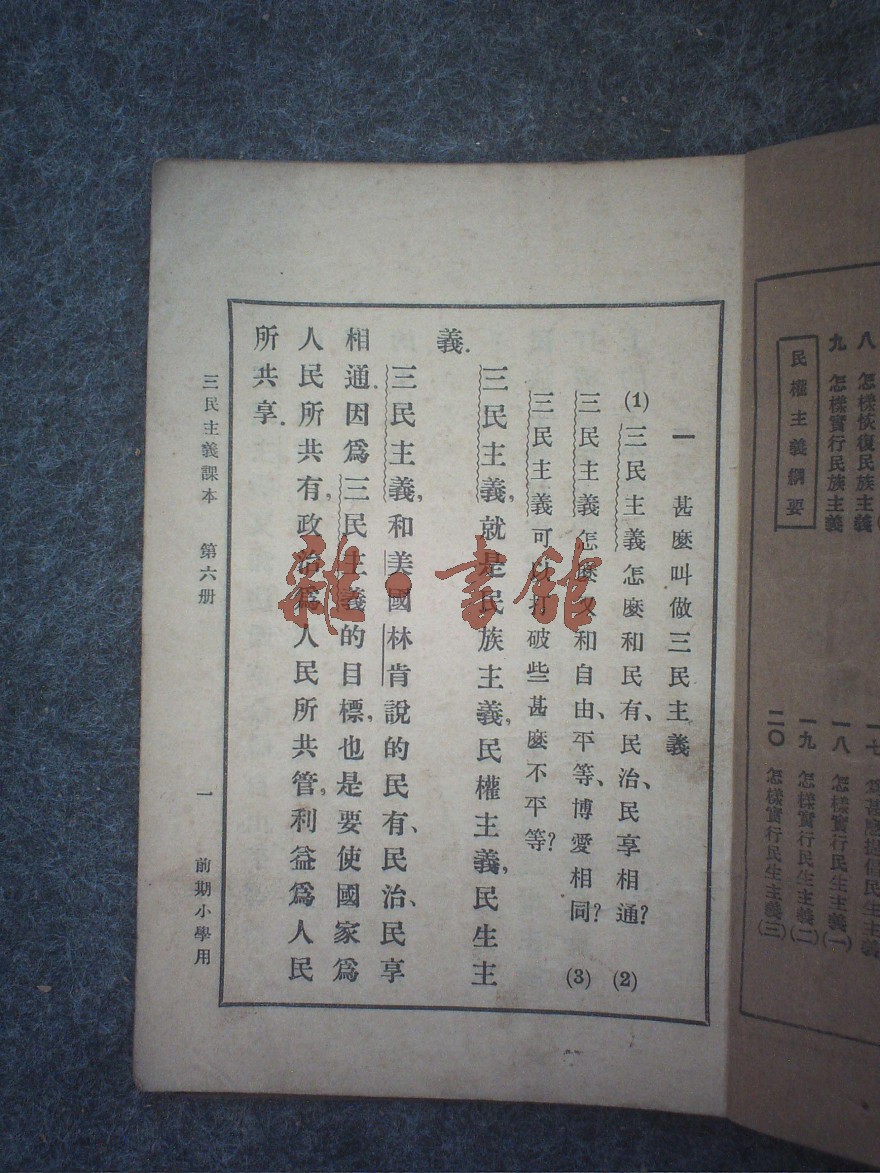 八　怎樣恢復民族主義
九　怎樣實行民族主義
民權主義綱要
一七　爲甚麼提倡民生主義
一八　怎樣實行民生主義(一)
一九　怎樣實行民生主義(二)
二〇　怎樣實行民生主義(三)
一　甚麼叫做三民主義
(1)三民主義怎麼和民有、民治、民享相通?(2)
三民主義怎麼又和自由、平等、博愛相同?(3)
三民主義可以打破些甚麼不平等?
三民主義,就是民族主義,民權主義,民生主
義.
三民主義,和美國林肯說的民有、民治、民享
相通.因爲三民主義的目標,也是要使國家爲
人民所共有,政治爲人民所共管,利益爲人民
所共享.
三民主義課本　第六册　一　前期小學用
雜·書館